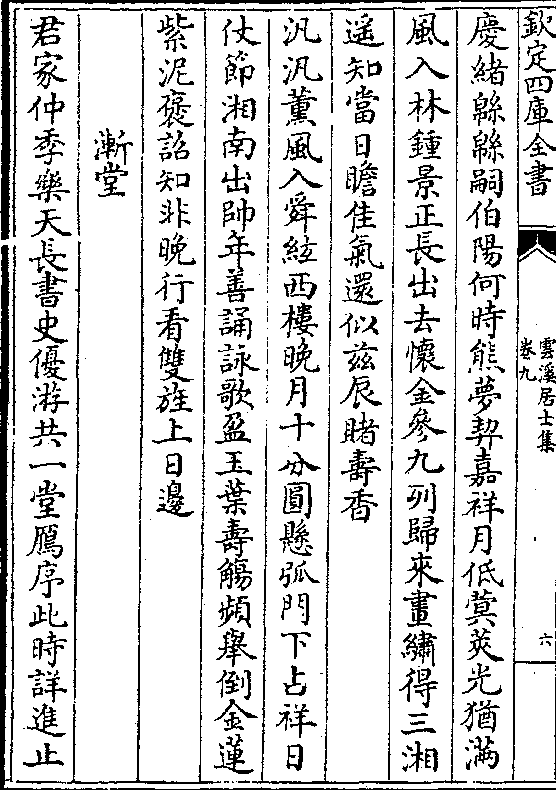 欽定四庫全書
雲溪居士集
卷九
六
慶緒緜緜嗣伯陽何時熊夢契嘉祥月低蓂莢光猶滿
風入林鍾景正長出去懷金參九列歸來晝繡得三湘
遥知當日瞻佳氣還似兹辰睹壽香
汎汎薰風入舜絃西樓晚月十分圓懸弧門下占祥日
仗節湘南出帥年善誦詠歌盈玉葉壽觴頻舉倒金蓮
紫泥褒詔知非晚行看雙旌上日邊
漸堂
君家仲季樂天長書史優游共一堂鴈序此時詳進止